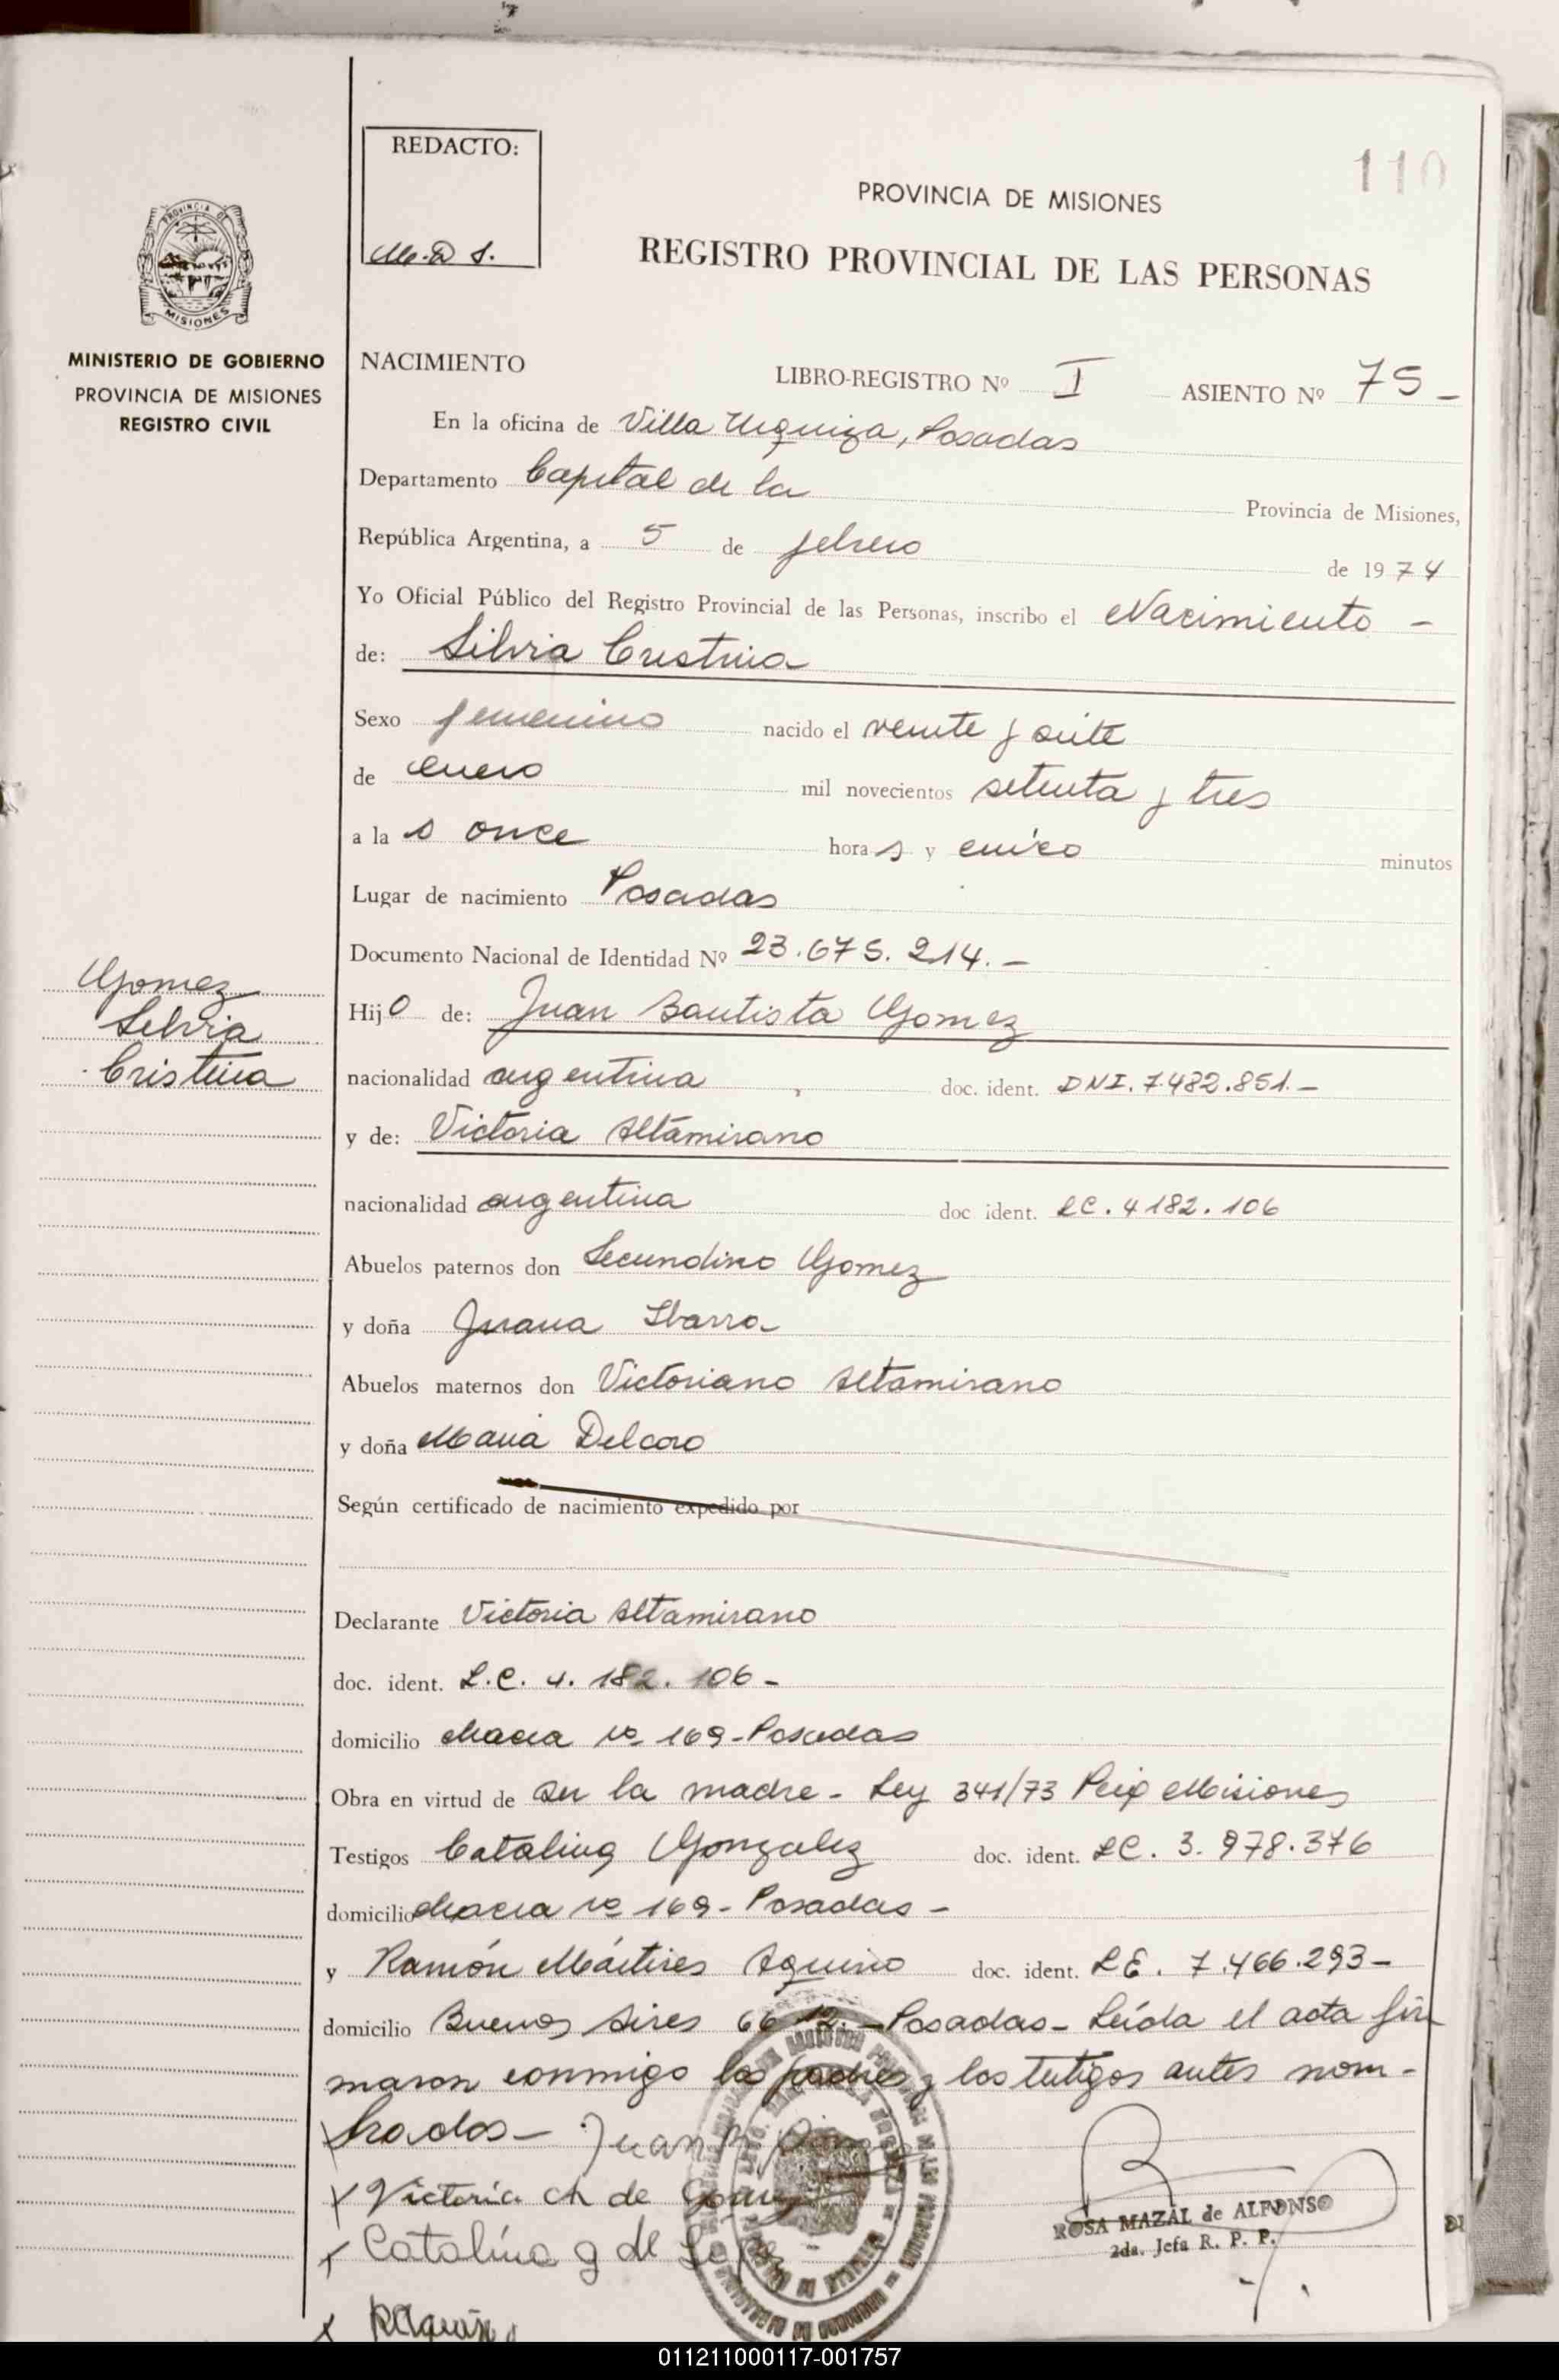 110
REDACTO:
PROVINCIA DE MISIONES
REGISTRO PROVINCIAL DE LAS PERSONAS
MISIONES
MINISTERIO DE GOBIERNO
PROVINCIA DE MISIONES
REGISTRO CIVIL
NACIMIENTO
LIBRO-REGISTRO Nº I ASIENTO Nº 75 -
En la oficina de Villa Urquiza, Posadas
Departamento Capital de la Provincia de Misiones,
República Argentina, a 5 de febrero de 1974
Yo Oficial Público del Registro Provincial de las Personas, inscribo el Nacimiento -
de: Silvia Cristina
Sexo femenino nacido el veinte y siete
de enero mil novecientos setenta y tres
a las once horas y cinco minutos
Lugar de nacimiento Posadas
Documento Nacional de Identidad Nº 23.675.214.-
Gomez
Silvia
Cristina
Hijo de: Juan Bautista Gomez
nacionalidad argentina doc. ident. DNI. 7.482.851.-
y de: Victoria Altamirano
nacionalidad argentina doc ident. LC. 4182.106
Abuelos paternos don Secundino Gomez
y doña Juana Ibarra
Abuelos maternos don Victoriano Altamirano
y doña Maria Delcoro
Según certificado de nacimiento expedido por
Declarante Victoria Altamirano
doc. ident. L.C. 4.182.106-
domicilio Chacra Nº 169-Posadas
Obra en virtud de ser la madre- Ley 341/73 Misiones
Testigos Catalina Gonzalez doc. ident. LC. 3.978.376
domicilio Chacra Nº 169- Posadas-
y Ramón Mártires Aquino doc. ident. LE. 7.466.293-
domicilio Buenos Aires 6612.- Posadas- Leída el acta fir
maron conmigo los padres y los testigos antes nom-
brados-
Victoria de Gomez
Catalina g de
ROSA MAZAL de ALFONSO
2da. Jefa R. P. P.
011211000117-001757